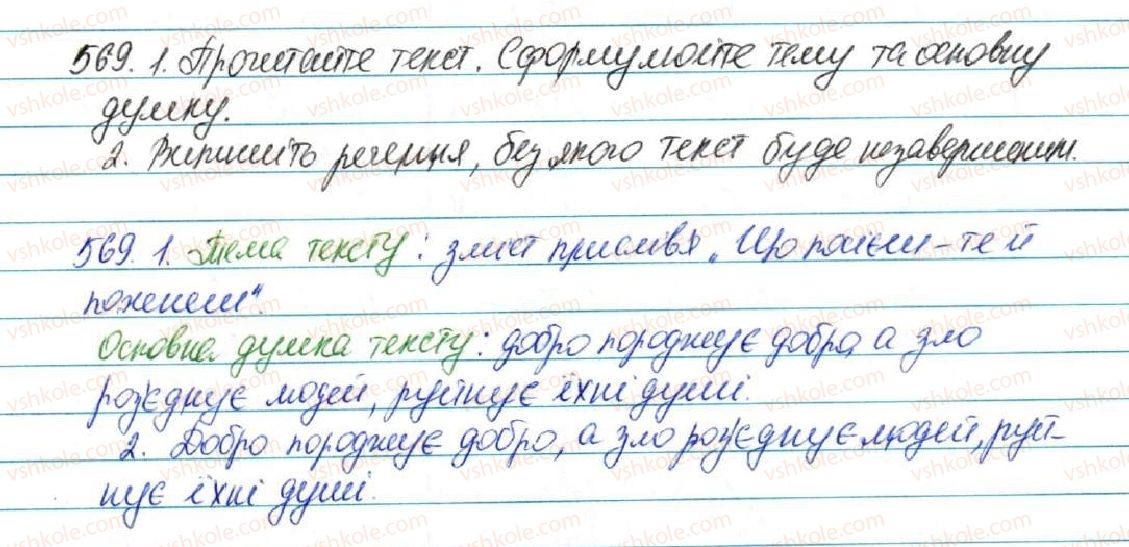 569. 1. Прочитайте текст. Сформулюйте тему та основну
думку.
2. Випишіть речення, без якого текст буде незавершеним.
569. 1. Тема тексту: зміст прислів'я „Що посієш – те й
пожнеш".
Основна думка тексту: добро породжує добро, а зло
роз'єднує людей, руйнує їхні душі.
2. Добро породжує добро, а зло роз'єднує людей, руй-
нує їхні душі.